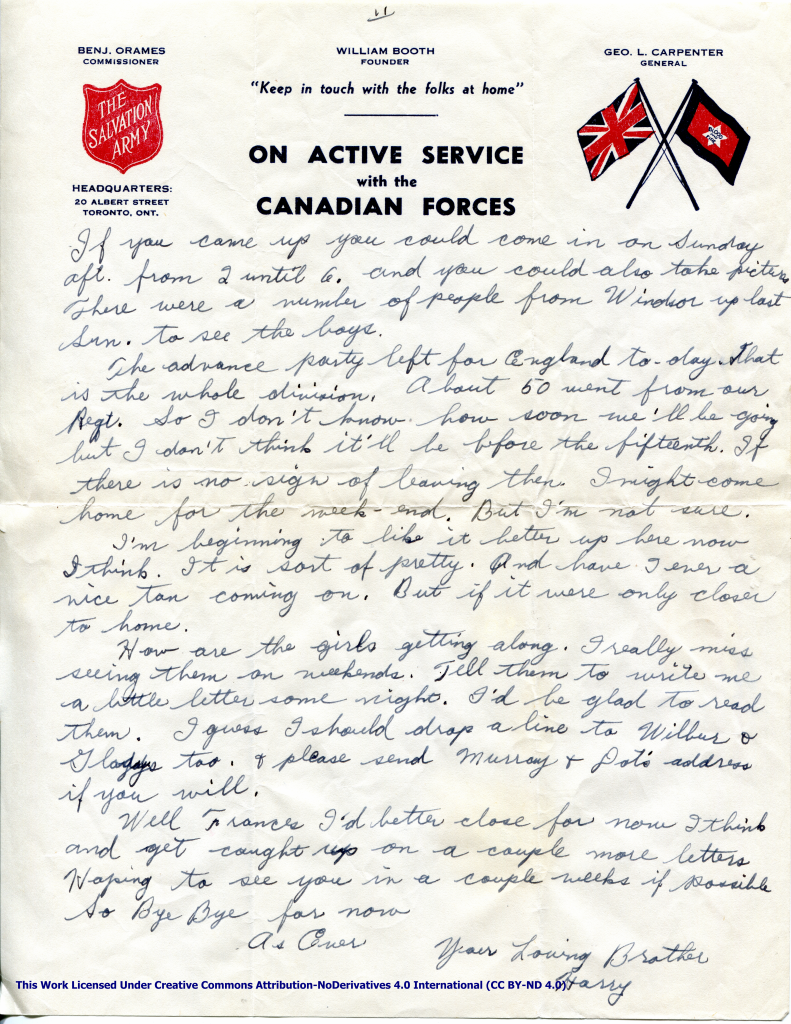 11
BENJ. ORAMES
COMMISSIONER
WILLIAM BOOTH
FOUNDER
GEO. L. CARPENTER
GENERAL
"Keep in touch with the folks at home"
THE
SALVATION
ARMY
BLOOD
AND
FIRE
ON ACTIVE SERVICE
with the
CANADIAN FORCES
HEADQUARTERS:
20 ALBERT STREET
TORONTO, ONT.
If you came up you could come in on Sunday
aft. from 2 until 6. and you could also take pictures
There were a number of people from Windsor up last
Sun. to see the boys.
The advance party left for England to-day. That
is the whole division. About 50 went from our
Regt. So I don't know how soon we'll be going
but I don't think it'll be before the fifteenth. If
there is no sign of leaving then. I might come
home for the week-end. But I'm not sure.
I'm beginning to like it better up here now
I think. It is sort of pretty. And have I ever a
nice tan coming on. But if it were only closer
to home.
How are the girls getting along. I really miss
seeing them on weekends. Tell them to write me
a little letter some night. I'd be glad to read
them. I guess I should drop a line to Wilbur &
Gladys too. & please send Murray & Dot's address
if you will.
Well Frances I'd better close for now I think
and get caught up on a couple more letters
Hoping to see you in a couple weeks if possible
So Bye Bye for now
As Ever
Your Loving Brother
Harry
This Work Licensed Under Creative Commons Attribution-NoDerivatives 4.0 International (CC BY-ND 4.0)